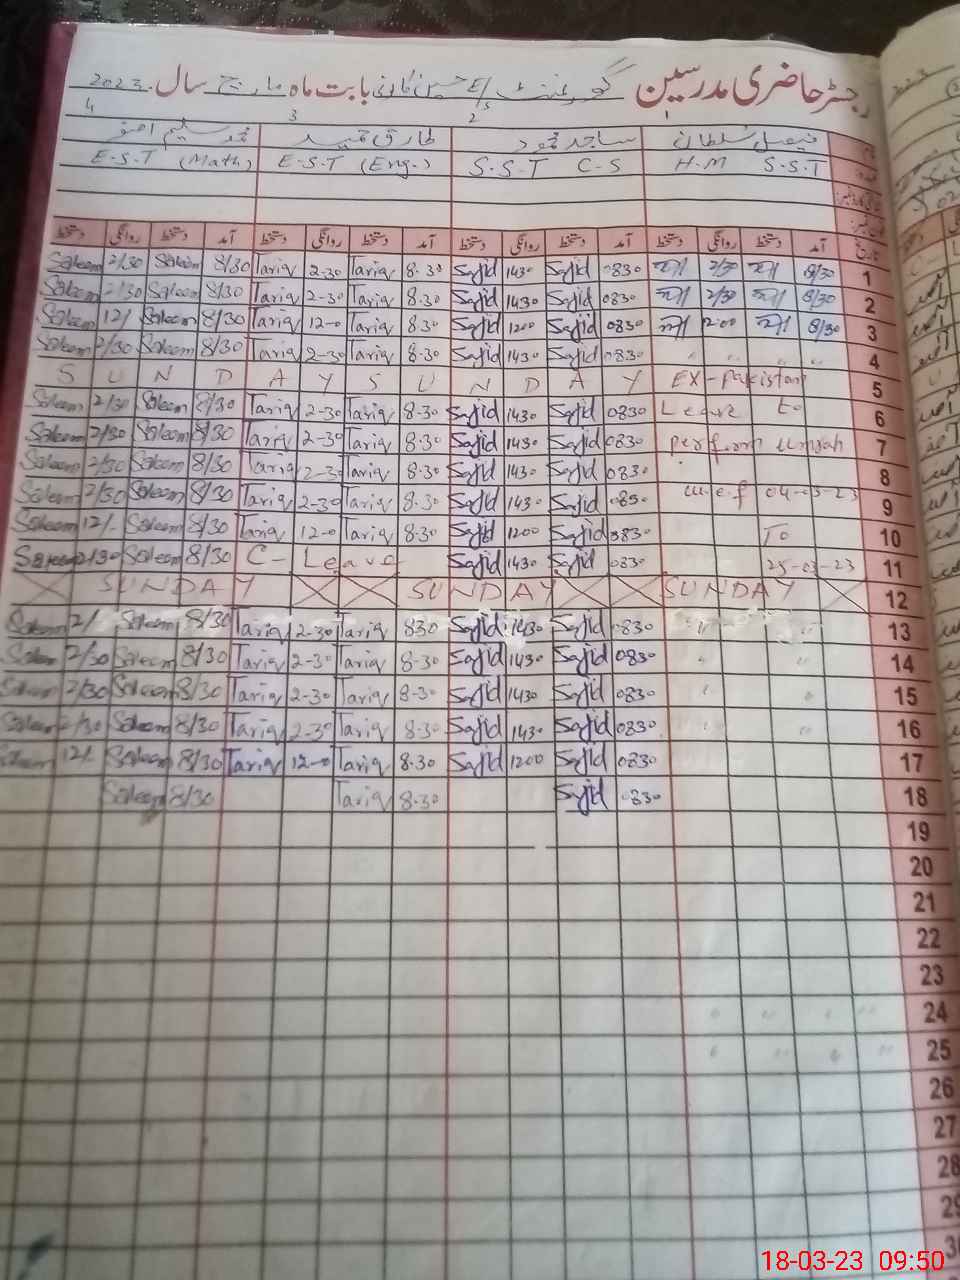 رجسٹر حاضری مدرسین گورنمنٹ E/S بابت ماہ مارچ سال 2023
1 2 3 4
فیصل سلطان ساجد محمود طارق محمد سلیم
H.M S.S.T S.S.T C-S E.S.T (Eng.) E.S.T (Math)
تاریخ آمد دستخط روانگی دستخط آمد دستخط روانگی دستخط آمد دستخط روانگی دستخط آمد دستخط روانگی دستخط
Saleem 2/30 Saleem 8/30 Tariq 2-30 Tariq 8.30 Sajid 1430 Sajid 0830 2/30 8/30 1
Saleem 2/30 Saleem 8/30 Tariq 2-30 Tariq 8.30 Sajid 1430 Sajid 0830 2/30 8/30 2
Saleem 12/ Saleem 8/30 Tariq 12-0 Tariq 8.30 Sajid 1200 Sajid 0830 12.00 8/30 3
Saleem 2/30 Saleem 8/30 Tariq 2-30 Tariq 8.30 Sajid 1430 Sajid 0830 " " " " 4
S U N D A Y S U N D A Y EX-Pakistan 5
Saleem 2/30 Saleem 8/30 Tariq 2-30 Tariq 8.30 Sajid 1430 Sajid 0830 Leave to 6
Saleem 2/30 Saleem 8/30 Tariq 2-30 Tariq 8.30 Sajid 1430 Sajid 0830 perform umrah 7
Saleem 2/30 Saleem 8/30 Tariq 2-30 Tariq 8.30 Sajid 1430 Sajid 0830 8
Saleem 2/30 Saleem 8/30 Tariq 2-30 Tariq 8.30 Sajid 1430 Sajid 0830 w.e.f 04-03-23 9
Saleem 12/- Saleem 8/30 Tariq 12-0 Tariq 8.30 Sajid 1200 Sajid 0830 To 10
Saleem 2/30 Saleem 8/30 C- Leave Sajid 1430 Sajid 0830 25-03-23 11
SUNDAY SUNDAY SUNDAY 12
Saleem 2/ Saleem 8/30 Tariq 2-30 Tariq 830 Sajid 1430 Sajid 0830 " " 13
Saleem 2/30 Saleem 8/30 Tariq 2-30 Tariq 8-30 Sajid 1430 Sajid 0830 " " 14
Saleem 2/30 Saleem 8/30 Tariq 2-30 Tariq 8.30 Sajid 1430 Sajid 0830 " " 15
Saleem 2/30 Saleem 8/30 Tariq 2-30 Tariq 8-30 Sajid 1430 Sajid 0830 " " 16
Saleem 12/- Saleem 8/30 Tariq 12-0 Tariq 8.30 Sajid 1200 Sajid 0830 17
Saleem 8/30 Tariq 8.30 Sajid 0830 18
19
20
21
22
23
" " " " 24
" " " " 25
26
27
28
29
18-03-23 09:50